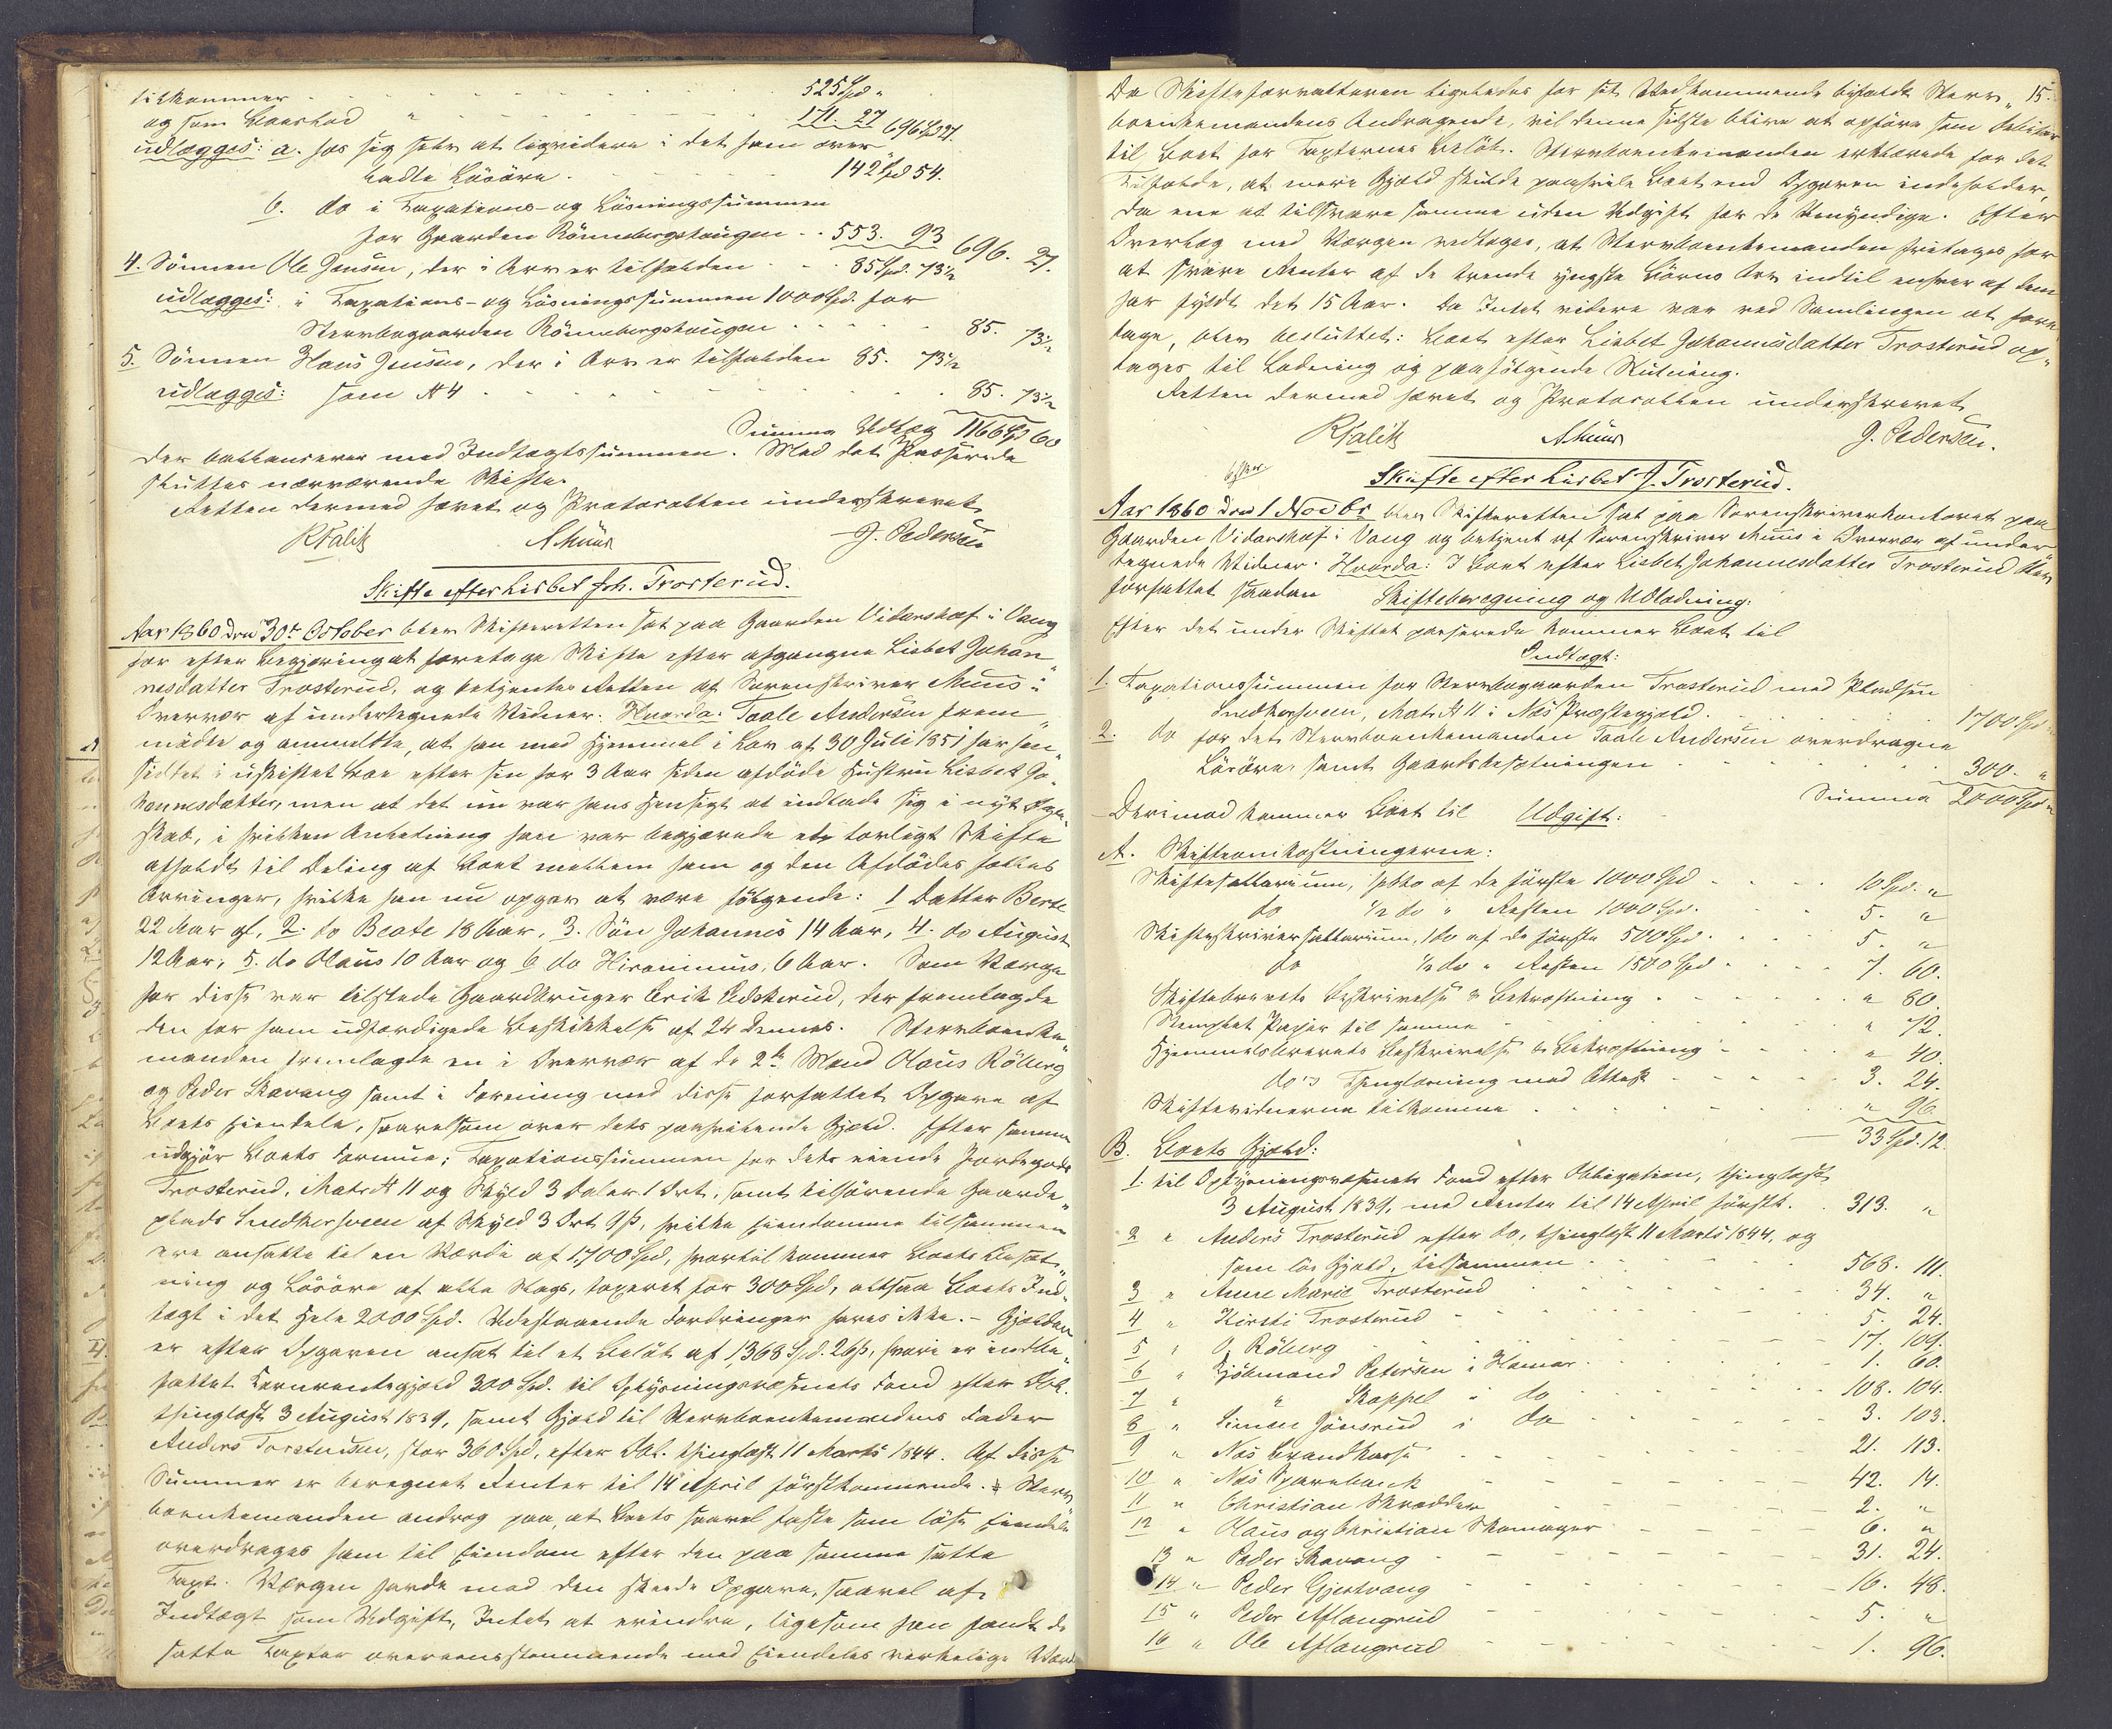 tilkommer . . . . . . . . . 525 Spd "
og som Boeslod " . . . . . . . 171. 27 696 Spd 27
udlægges: a. hos sig selv at liqvidere i det ham over
ladte Lösöre . . . . . . . 142 Spd 54.
b. do i Taxations- og Lösningssummen
for Gaarden Rönnebergshaugen . . 553. 93 696. 27.
4. Sönnen Ole Jensen, der i Arv er tilfalden - 85 Spd. 73½
udlægges: i Taxations- og Lösningssummen 1000 Spd. for
Stervbogaarden Rönnebergshaugen . . . . . 85. 73½
5. Sönnen Hans Jensen, der i Arv er tilfalden 85. 73½
udlægges: som № 4 . . . . . . . . . 85. 73½
Summa Udlæg 1166 Spd 60
der ballancerer med Indtægtssummen. Med det Passerede
sluttes nærværende Skifte.
Retten dermed hævet og Protocollen underskrevet
RFalck AMuus J. Pedersen
Skifte efter Lisbet Joh. Trosterud.
Aar 1860 den 30te October blev Skifteretten sat paa Gaarden Vidarshof i Vang
for efter Begjæring at foretage Skifte efter afgangne Lisbet Johan"
nesdatter Trosterud, og betjentes Retten af Sorenskriver Muus i
Overvær af undertegnede Vidner. Hvorda: Taale Andersen frem"
mödte og anmeldte, at han med Hjemmel i Lov af 30 Juli 1851 har hen"
siddet i uskiftet Boe efter sin for 3 Aar siden afdöde Hustru Lisbet Jo"
hannesdatter, men at det nu var hans Hensigt at indlade sig i nyt Ægte"
skab, i hvilken Anledning han var begjærende et lovligt Skifte
afholdt til Deling af Boet mellem ham og den Afdödes fælles
Arvinger, hvilke han nu opgav at være fölgende: 1 Datter Berte
22 Aar gl, 2. do Beate 18 Aar, 3. Sön Johannis 14 Aar, 4. do August
12 Aar, 5. do Olaus 10 Aar og 6 do Hironimus, 6 Aar. Som Værge
for disse var tilstede Gaardbruger Erik Udskerud, der fremlagde
den for ham udfærdigede Beskikkelse af 24 dennes. Stervboenke"
manden fremlagde en i Overvær af de 2de Mænd Olaus Röberg
og Peder Skavang samt i Forening med disse forfattet Opgave af
Boets Eiendele, saavelsom over dets paahvilende Gjæld. Efter samme
udgjör Boets Formue; Taxationssummen for dets eiende Jordegods
Trosterud, Matr № 11 og Skyld 3 Daler 1 Ort, samt tilhörende Gaards"
plads Snedkersveen af Skyld 3 Ort 9 ß, hvilke Eiendomme tilsammen
ere ansatte til en Værdi af 1700 Spd, hvortil kommer Boets Besæt"
ning og Lösöre af alle Slags, taxeret for 300 Spd, altsaa Boets Ind"
tægt i det Hele 2000 Spd. Udestaaende Fordringer haves ikke. - Gjælden
er efter Opgaven ansat til et Belöb af 1,368 Spd. 26 ß, hvori er indbe"
fattet Fornrentegjæld 300 Spd. til Oplysningsvæsenets Fond efter Obl.
thinglæst 3 August 1839, samt Gjæld til Stervboenkemandens Fader
Anders Torstensen, stor 360 Spd, efter Obl. thinglæst 11 Marts 1844. Af disse
Summer er beregnet Renter til 14 April förstkommende. Sterv
boenkemanden androg paa, at Boets saavel faste som löse Eiendele
overdrages ham til Eiendom efter den paa samme satte
Taxt. Værgen havde mod den skeede Opgave, saavel af
Indtægt som Udgift, Intet at erindre, ligesom han fandt de
satte Taxter overeensstemmende med Eiendeles virkelige Værd
15.
Da Skifteforvalteren ligeledes for sit Vedkommende bifaldt Sterv"
boenkemandens Andragende, vil denne sidste blive at opföre som Debitor
til Boet for Taxternes Belöb. Stervboenkemanden erklærede for det
Tilfælde, at mere Gjæld skulde paahvile Boet end Opgaven indeholder,
da ene at tilsvare samme uden Udgift for de Umyndige. Efter
Overlæg med Værgen vedtoges, at Stervboenkemanden fritages for
at svare Renter af de trende yngste Börns Arv indtil enhver af dem
har fyldt det 15 Aar. Da Intet videre var ved Samlingen at fore"
tage, blev besluttet: Boet efter Lisbet Johannesdatter Trosterud op"
tages til Lodning og paafölgende Slutning.
Retten dermed hævet og Protocollen underskrevet
RFalck AMuus J. Pedersen.
Skifte efter Lisbet J. Trosterud.
Aar 1860 den 1 Novbr blev Skifteretten sat paa Sorenskriverkontoret paa
Gaarden Vidarshof i Vang og betjent af Sorenskriver Muus i Overvær af under
tegnede Vidner. Hvorda: I Boet efter Lisbet Johannesdatter Trosterud blev
forfattet saadan Skifteberegning og Udlodning:
Efter det under Skiftet passerede kommer Boet til
Indtægt:
1. Taxationssummen for Stervbogaarden Trosterud med Pladsen
Snedkersveen, Matr № 11 i Næs Præstegjeld. . . . . 1700 Spd "
2. do for det Stervboenkemanden Taale Andersen overdragne
Lösöre, samt Gaardsbesætningen . . . . . . 300. "
Summa 2000 Spd "
Derimod kommer Boet til Udgift:
A. Skifteomkostningerne:
Skiftesallarium, 1 pCto af de förste 1000 Spd . . . . 10 Spd. "
do ½ do " Resten 1000 Spd. . . 5. "
Skifteskriversallarium, 1 do af de förste 500 Spd. . . . 5. "
do ½ do " Resten 1500 Spd . . . . 7. 60.
Skiftebrevets Beskrivelse & Bekræftning . . . . . . " 80.
Stemplet Papir til samme . . . . . . " 72.
Hjemmelsbrevets Beskrivelse & Bekræftning . . . . " 40.
do's Thinglæsning med Attest . . . . . 3. 24.
Skiftevidnerne tilkomme . . . . . . . " 96.
33 Spd. 12
B. Boets Gjæld:
1. til Oplysningsvæsenets Fond efter Obligation, thinglæst
3 August 1839, med Renter til 14 April förstk. . 313. "
2 " Anders Trosterud efter do, thinglæst 11 Marts 1844, og
som lös Gjæld, tilsammen . . . . . 568. 111.
3 " Anne Marie Trosterud . . . . . . 34. "
4 " Kirsti Trosterud - . . . . . . 5. 24.
5 " O. Röberg . . . . . . . 17. 109.
6 " Kjöbmand Petersen i Hamar . . . . . 1. 60.
7 " " Skappel " do . . . . . 108. 104.
8 " Simen Jönsrud i do - - - - 3. 103.
9 " Næs Brandkasse . . . . . . 21. 113.
10 " Næs Sparebank - - - - - - 42. 14.
11 " Christian Skrædder - - - - - 2. "
12 " Olaus og Christian Skomager - - - - 6. "
13 " Peder Skavang - - - - - - 31. 24.
14 " Peder Gjestvang - - - - - - 16. 48.
15 " Peder Aflangrud - - - - - - 5. "
16 " Ole Aflangrud - - - - - - 1. 96.